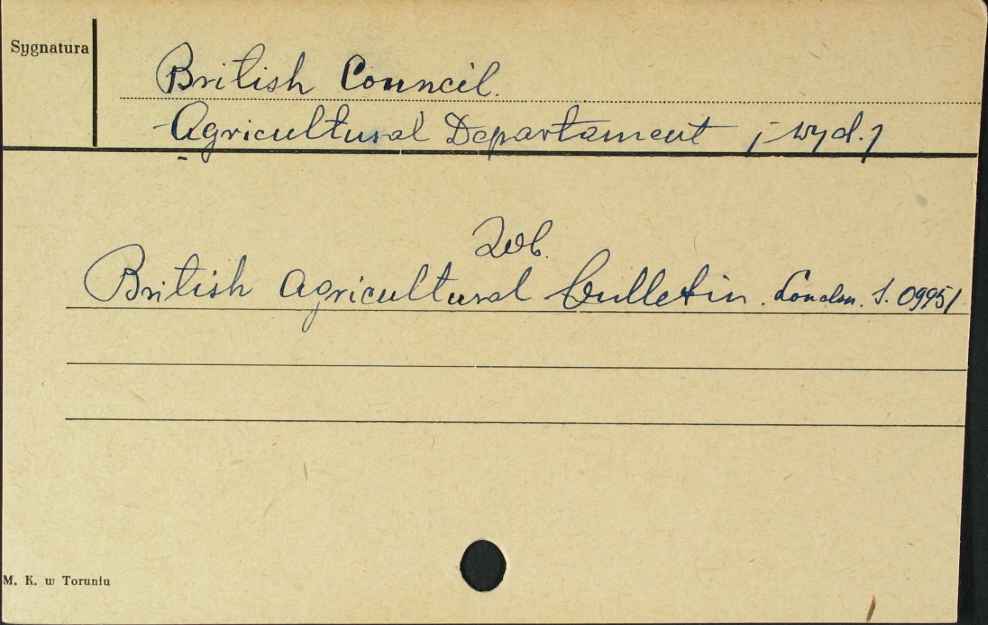 Sygnatura
British Council.
Agricultural Departament [wyd.]
Zob.
British Agricultural Bulletin. London. S. 09951
M. K. w Toruniu